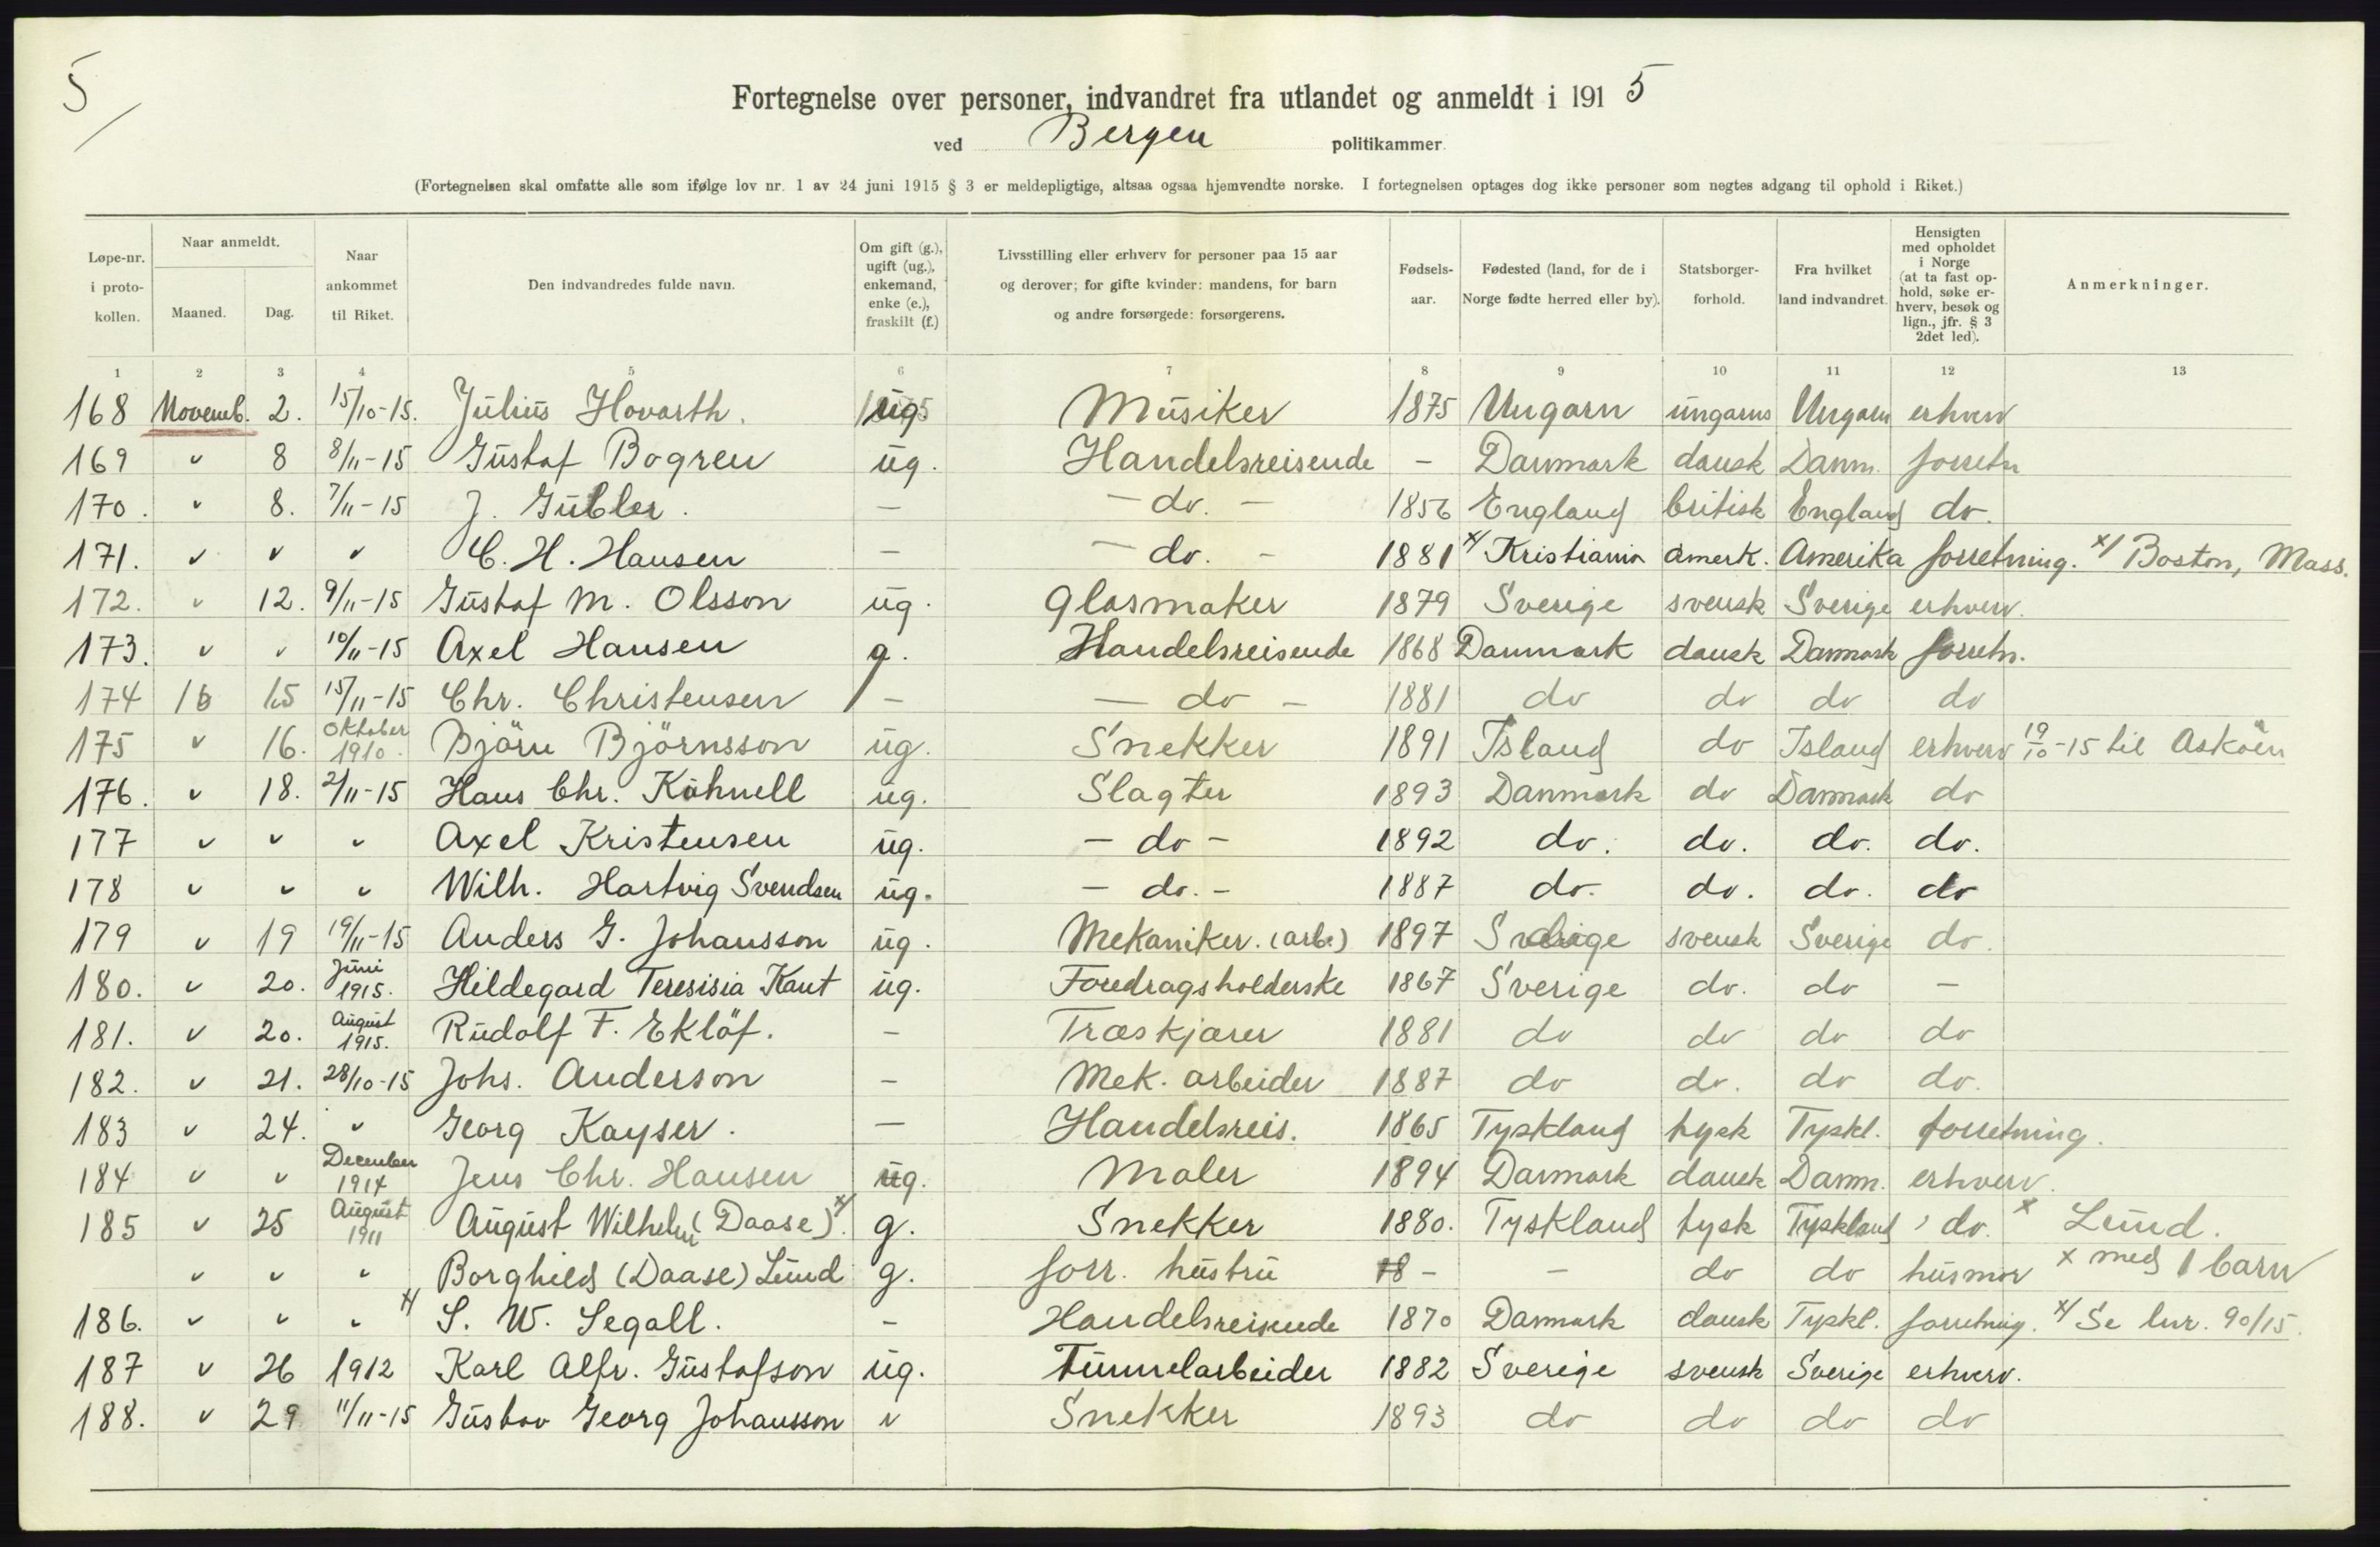 5/
Fortegnelse over personer, indvandret fra utlandet og anmeldt i 191 5
ved Bergen politikammer
(Fortegnelsen skal omfatte alle som ifølge lov nr. 1 av 24 juni 1915 § 3 er meldepligtige, altsaa ogsaa hjemvendte norske. I fortegnelsen optages dog ikke personer som negtes adgang til ophold i Riket.)
Løpe-nr. i proto-kollen.
Naar anmeldt.
Maaned. Dag.
Naar ankommet til Riket.
Den indvandredes fulde navn.
Om gift (g.), ugift (ug.), enkemand, enke (e.), fraskilt (f.)
Livsstilling eller erhverv for personer paa 15 aar og derover; for gifte kvinder: mandens, for barn og andre forsørgede: forsørgerens.
Fødsels-aar.
Fødested (land, for de i Norge fødte herred eller by).
Statsborger-forhold.
Fra hvilket land indvandret.
Hensigten med opholdet i Norge (at ta fast op-hold, søke er-hverv, besøk og lign., jfr. § 3 2det led).
Anmerkninger.
1 2 3 4 5 6 7 8 9 10 11 12 13
168 Novemb. 2. 15/10-15. Julius Hovarth. ug Musiker 1875 Ungarn ungarns Ungarn erhverv
169 " 8 8/11-15 Gustaf Bogren ug. Handelsreisende - Danmark dansk Danm. forretn
170. " 8. 7/11-15 J. Gubler. — - do. - 1856 England britisk England do.
171. " " " C. H. Hansen — - do. - 1881 x/ Kristiania amerk. Amerika forretning. x/ Boston, Mass.
172. " 12. 9/11-15 Gustaf M. Olsson ug. Glasmaker 1879 Sverige svensk Sverige erhverv.
173. " " 10/11-15 Axel Hansen g. Handelsreisende 1868 Danmark dansk Danmark forretn.
174 15 15/11-15 Chr. Christensen - — do - 1881 do do do do
175 " 16. Oktober 1910. Björn Björnsson ug. Snekker 1891 Island do Island erhverv 19/10-15 til Askøen
176. " 18. 2/11-15 Hans Chr. Kühnell ug. Slagter 1893 Danmark do Danmark do
177 " " " Axel Kristensen ug. - do - 1892 do. do. do. do.
178 " " " Wilh. Hartvig Svendsen ug. - do. - 1887 do. do. do. do
179 " 19 19/11-15 Anders G. Johansson ug. Mekaniker. (arb.) 1897 Sverige svensk Sverige do.
180. " 20. Juni 1915. Hildegard Teresisia Kant ug. Foredragsholderske 1867 Sverige do. do -
181. " 20. August 1915. Rudolf F. Eklöf. - Træskjærer 1881 do do do do
182. " 21. 28/10-15 Johs. Anderson - Mek. arbeider 1887 do do. do do.
183 " 24. " Georg Kayser. — Handelsreis. 1865 Tyskland tysk Tyskl. forretning.
184 " " December 1914 Jens Chr. Hansen ug. Maler 1894 Danmark dansk Danm. erhverv.
185 " 25 August 1911 August Wilhelm (Daase) x/ g. Snekker 1880. Tyskland tysk Tyskland do. x Lund.
" " " Borghild (Daase) Lund g. forr. hustru 18 - - do do husmor x med 1 barn
186. " " " x/ S. W. Segall. - Handelsreisende 1870 Danmark dansk Tyskl. forretning. x/ Se lnr. 90/15.
187 " 26 1912 Karl Alfr. Gustafson ug. Tunnelarbeider 1882 Sverige svensk Sverige erhverv.
188. " 29 11/11-15 Gustav Georg Johansson " Snekker 1893 do do do do